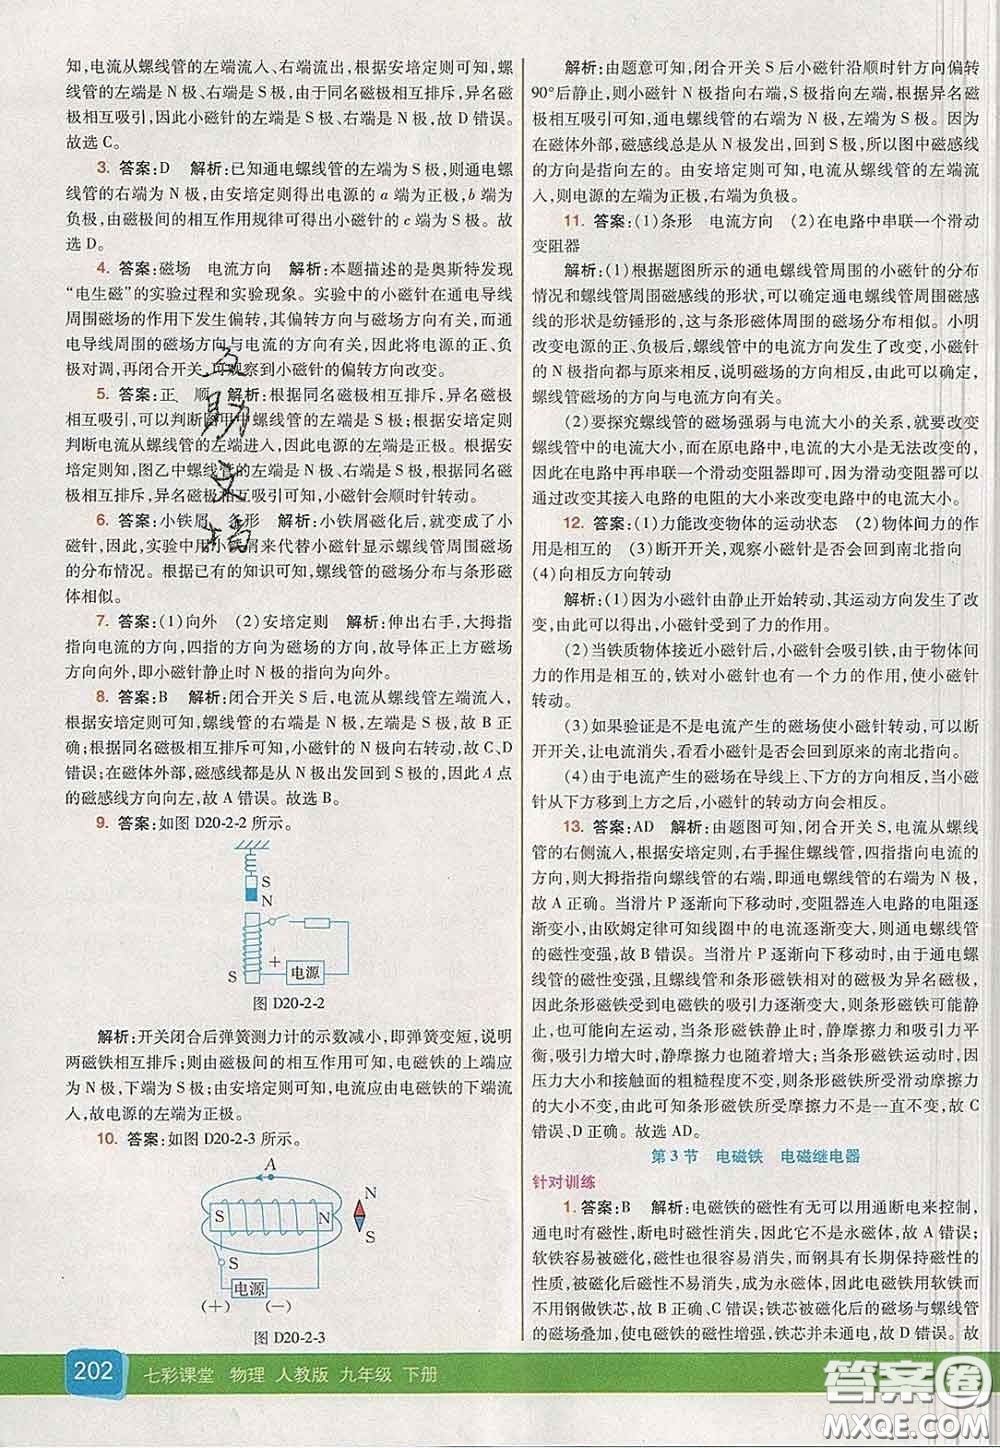 知,电流从螺线管的左端流入、右端流出,根据安培定则可知,螺
线管的左端是 N 极、右端是 S 极,由于同名磁极相互排斥,异名磁
极相互吸引,因此小磁针的左端是 S 极、右端是 N 极,故 D 错误。
故选 C。
3. 答案:D 解析:已知通电螺线管的左端为 S 极,则通电螺
线管的右端为 N 极,由安培定则得出电源的 a 端为正极,b 端为
负极,由磁极间的相互作用规律可得出小磁针的 c 端为 S 极。故
选 D。
4. 答案:磁场 电流方向 解析:本题描述的是奥斯特发现
“电生磁”的实验过程和实验现象。实验中的小磁针在通电导线
周围磁场的作用下发生偏转,其偏转方向与磁场方向有关,而通
电导线周围的磁场方向与电流的方向有关,因此将电源的正、负
极对调,再闭合开关,可观察到小磁针的偏转方向改变。
5. 答案:正 顺 解析:根据同名磁极相互排斥,异名磁极
相互吸引,可以判断图甲中螺线管的左端是 S 极;根据安培定则
判断电流从螺线管的左端进入,因此电源的左端是正极。根据安
培定则可知,图乙中螺线管的左端是 N 极,右端是 S 极,根据同名
磁极相互排斥,异名磁极相互吸引可知,小磁针会顺时针转动。
6. 答案:小铁屑 条形 解析:小铁屑磁化后,就变成了小
磁针,因此,实验中用小铁屑来代替小磁针显示螺线管周围磁场
的分布情况。根据已有的知识可知,螺线管的磁场分布与条形磁
体相似。
7. 答案:(1)向外 (2)安培定则 解析:伸出右手,大拇指
指向电流的方向,四指的方向为磁场的方向,故导体正上方磁场
方向向外,即小磁针静止时 N 极的指向为向外。
8. 答案:B 解析:闭合开关 S 后,电流从螺线管左端流入,
根据安培定则可知,螺线管的右端是 N 极,左端是 S 极,故 B 正
确;根据同名磁极相互排斥可知,小磁针的 N 极向右转动,故 C、D
错误;在磁体外部,磁感线从 N 极出发回到 S 极,因此 A 点
的磁感线方向向左,故 A 错误。故选 B。
9. 答案:如图 D20-2-2 所示。
S
N
S
+
电源
图 D20-2-2
解析:开关闭合后弹簧测力计的示数减小,即弹簧变短,说明
两磁铁相互排斥;则由磁极间的相互作用可知,电磁铁的上端应
为 N 极,下端为 S 极;由安培定则可知,电流应由电磁铁的下端流
入,故电源的左端为正极。
10. 答案:如图 D20-2-3 所示。
A
S
N
N
S
S
电源
(+) (-)
图 D20-2-3
202 七彩课堂 物理 人教版 九年级 下册
解析:由题意可知,闭合开关 S 后小磁针沿顺时针方向偏转
90°后静止,则小磁针 N 极指向右端,S 极指向左端,根据异名磁
极相互吸引可知,通电螺线管的右端为 N 极,左端为 S 极。因为
在磁体外部,磁感线总是从 N 极发出,回到 S 极,所以 A 点磁感线
的方向是指向左的。由安培定则可知,电流从螺线管的左端流
入,则电源的左端为正极,右端为负极。
11. 答案:(1)条形 电流方向 (2)在电路中串联一个滑动
变阻器
解析:(1)根据题图所示的通电螺线管周围的小磁针的分布
情况和螺线管周围磁感线的形状,可以确定通电螺线管周围磁感
线的形状是纺锤形的,这与条形磁体周围的磁场分布相似。小明
改变电源的正、负极后,螺线管中的电流方向发生了改变,小磁针
的 N 极指向都与原来相反,说明磁场的方向改变了,由此可知通电
螺线管磁场的方向与电流方向有关。
(2)要探究螺线管的磁场强弱与电流大小的关系,就要改变
螺线管中的电流大小,而在原电路中,电流的大小是无法改变的,
因此在电路中再串联一个滑动变阻器即可,因为滑动变阻器可以
通过改变其接入电路的电阻的大小来改变电路中的电流大小。
12. 答案:(1)力能改变物体的运动状态 (2)物体间力的作
用是相互的 (3)断开开关,观察小磁针是否会回到南北指向
(4)向相反方向转动
解析:(1)因为小磁针由静止开始转动,其运动方向发生了改
变,所以一定是小磁针受到了力的作用。
(2)当铁质物体接近小磁针后,小磁针会吸引铁,由于物体间
力的作用是相互的,铁对小磁针也有一个力的作用,使小磁针
转动。
(3)如果验证是不是电流产生的磁场使小磁针转动,可以断
开开关,让电流消失,看看小磁针是否会回到原来的南北指向。
(4)由于电流产生的磁场在导线上、下方的方向相反,当小磁
针从下方移到上方之后,小磁针的转动方向将会相反。
13. 答案:AD 解析:由题图可知,闭合开关 S,电流从螺线
管的右侧流入,根据安培定则,右手握住螺线管,四指指向电流的
方向,则大拇指指向螺线管的右端,即通电螺线管的右端为 N 极,
故 A 正确。当滑片 P 逐渐向下移动时,变阻器连入电路的电阻
逐渐变小,由欧姆定律可知线圈中的电流逐渐变大,则通电螺线
管的磁性变强,故 B 错误。当滑片 P 逐渐向下移动时,由于通电螺
线管的磁性变强,且螺线管和条形磁铁相对的磁极为异名磁极,
因此条形磁铁受到电磁铁的吸引力逐渐变大,则条形磁铁可能静
止,也可能向左运动,当条形磁铁静止时,静摩擦力和吸引力平
衡,吸引力变大,静摩擦力也随着增大;当条形磁铁运动时,因
压力大小和接触面的粗糙程度不变,则条形磁铁所受滑动摩擦力
的大小不变,由此可知条形磁铁所受摩擦力可能不变,故 C
错误,D 正确。故选 AD。
第 3 节 电磁铁 电磁继电器
针对训练
1. 答案:B 解析:电磁铁的磁性有无可以用通断电来控制,
通电时有磁性,断电时磁性消失,因此它不是永磁体,故 A 错误;
软铁容易被磁化,磁性也很容易消失,而钢具有长期保持磁性的
性质,被磁化后磁性不易消失,成为永磁体,因此电磁铁用软铁而
不用钢做铁芯,故 B 正确、C 错误;铁芯被磁化后的磁场与螺线管的
磁场叠加,使电磁铁的磁性增强,铁芯并未通电,故 D 错误。故
答案圈
MXQE.COM